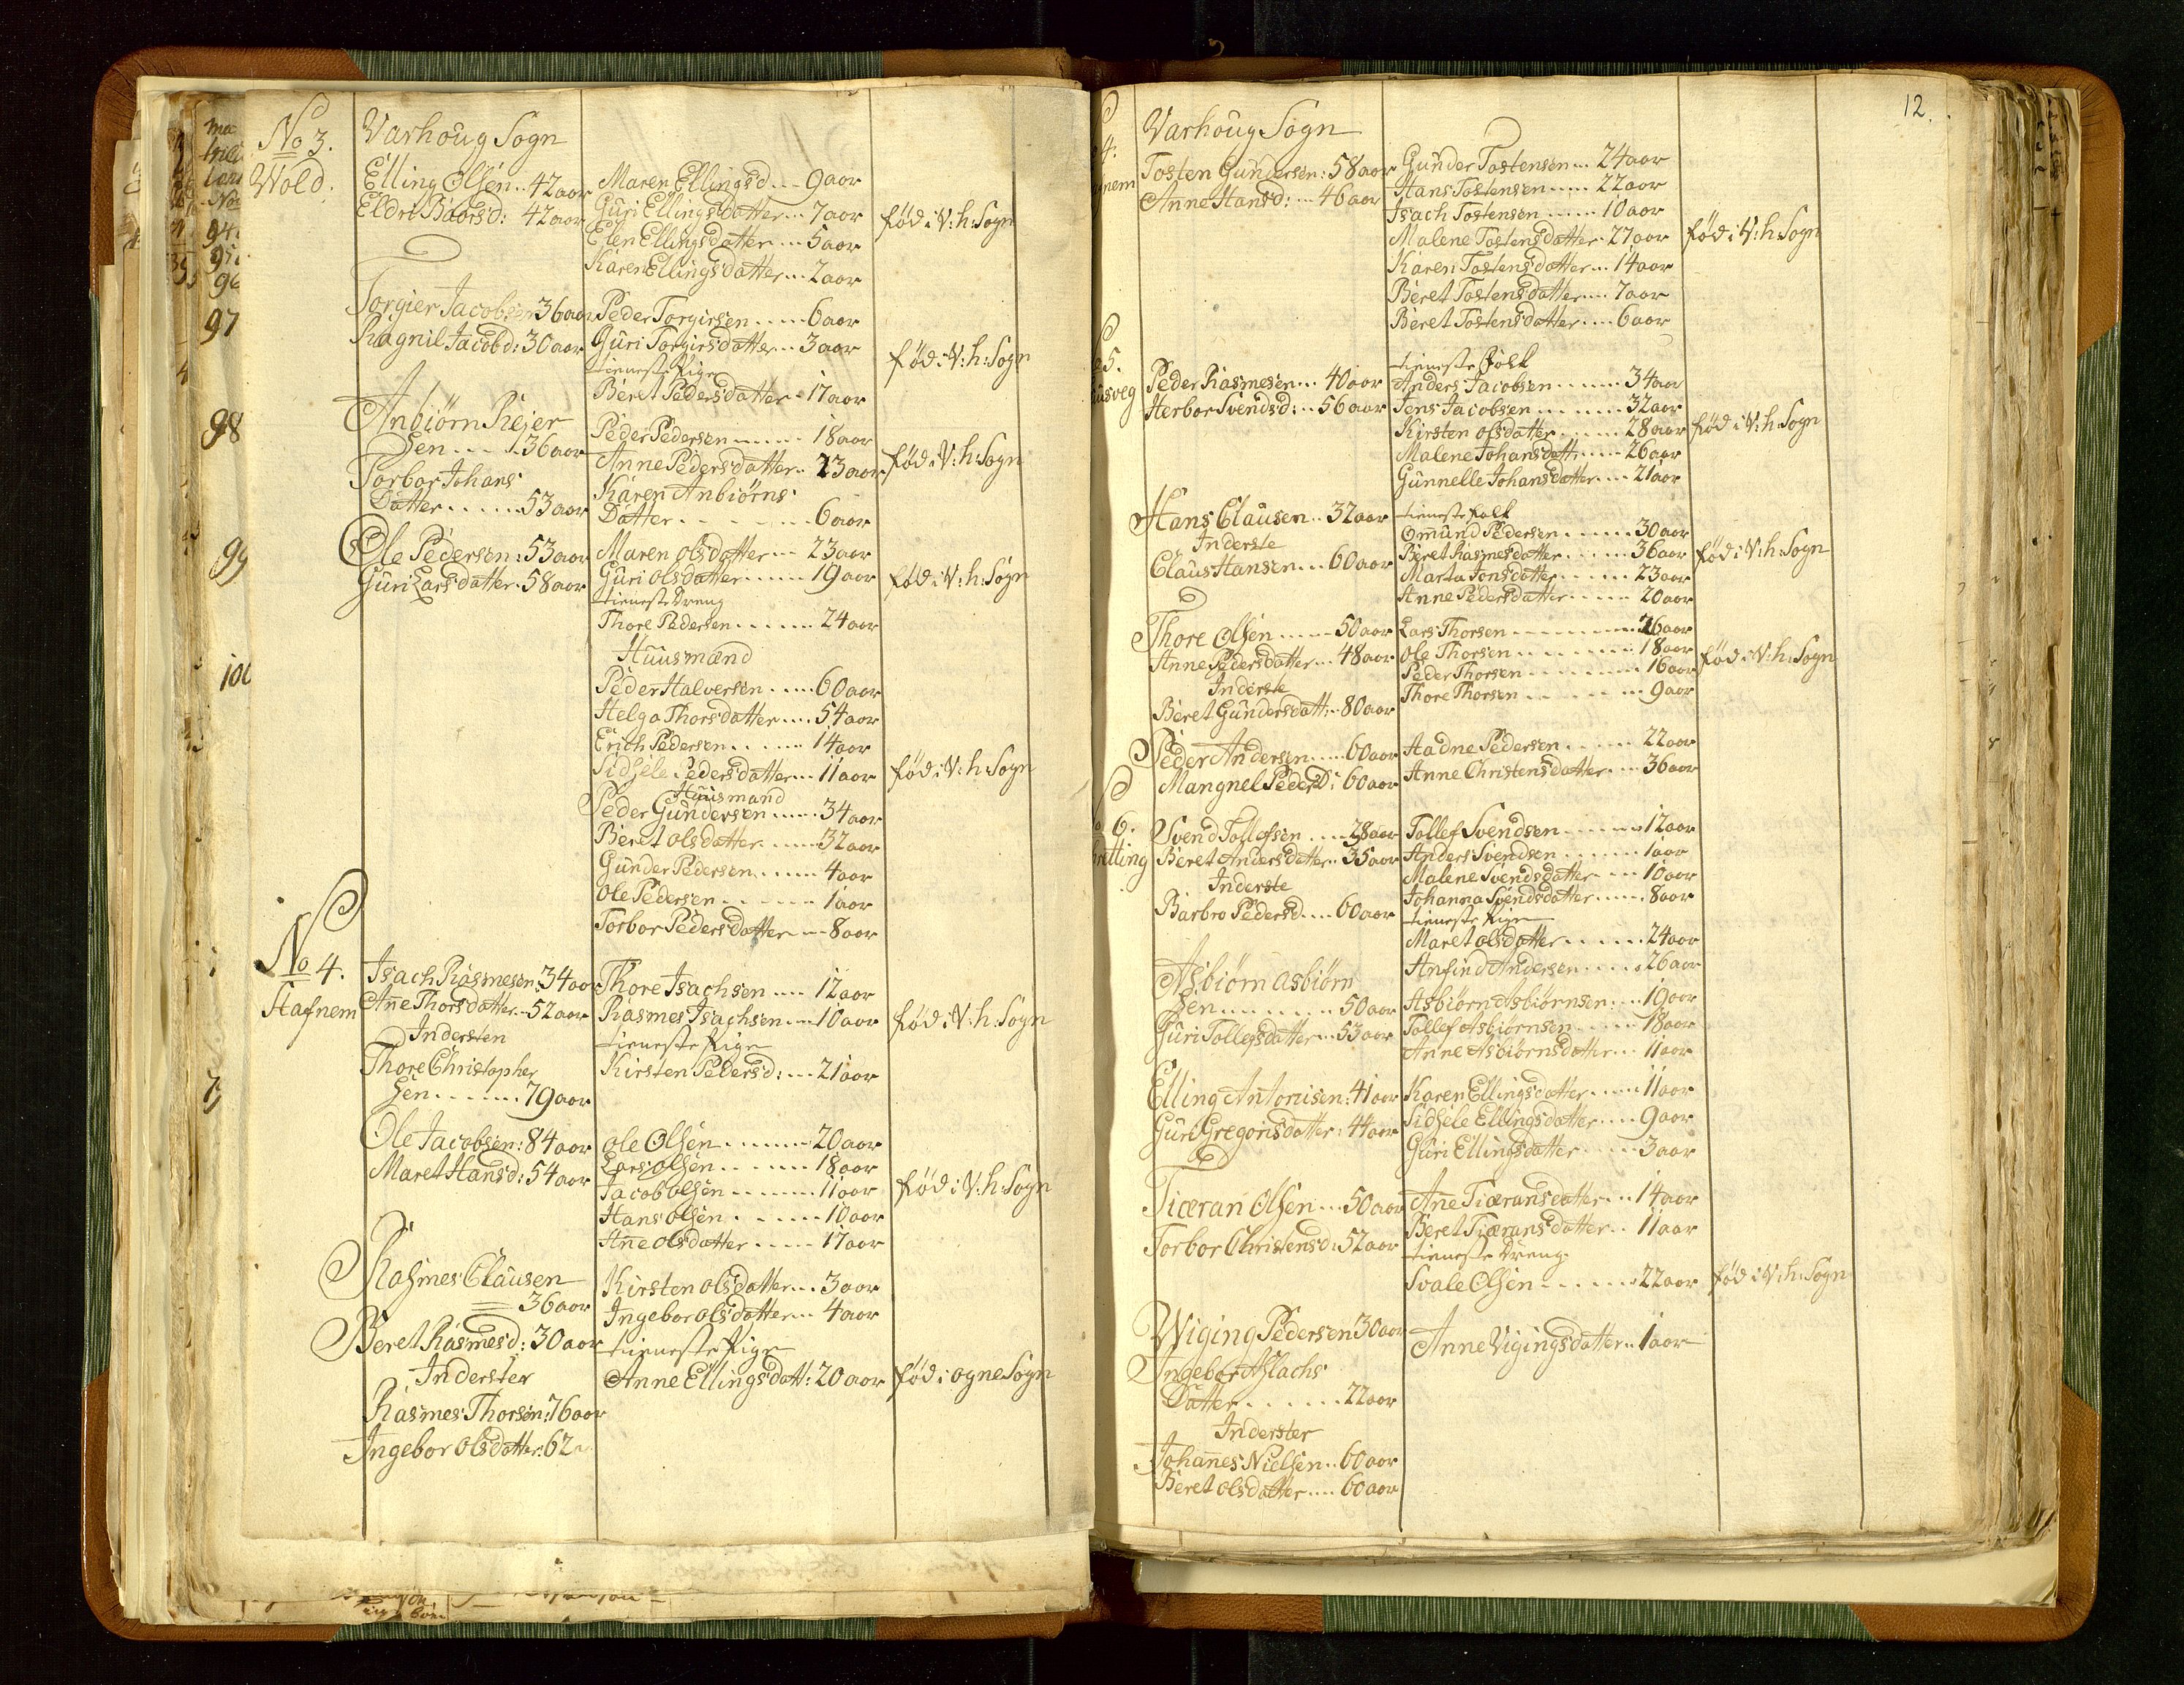 No 3.
Varhoug Sogn
Wold.
Elling Olsen .. 42 aor
Eldri Baorsd: 42 aor
Maren Ellingsd --- 9 aor
Guri Ellings datter --- 7 aor
Elen Ellingsdatter --- 5 aor
Karen Ellingsdatter --- 2 aor
fød i V: h: Sogn
97
Torgier Jacobsen 36 aor
Ragnil Jacobd: 30 aor
Peder Torgiersen ---- 6 aor
Guri Torgirsdatter -- 3 aor
tieneste Pige
Beret Pedersdatter - 17 aor
fød i V: h: Sogn
98
Anbiørn Rejer
Sen --- 36 aor
Torbor Johans
Datter ----- 53 aor
Peder Pedersen ---- 18 aor
Anne Pedersdatter .. 23 aor
Karen Anbiørns
Datter - - - - - 6 aor
fød i V: h: Sogn
99
Ole Pedersen : 53 aor
Guri Larsdatter - 58 aor
Maren olsdatter --- 23 aor
Guri olsdatter ----- 19 aor
tieneste Dreng
Thore Pedersen ----- 24 aor
fød i V: h: Sogn
100
Huusmænd
Peder Halversen ---- 60 aor
Helga Thorsdatter --- 54 aor
Erich Pedersen ---- 14 aor
Sidsele Pedersdatter --- 11 aor
fød i V: h: Sogn
Huusmand
Peder Gundersen ---- 34 aor
Beret olsdatter ---- 32 aor
Gunder Pedersen ---- 4 aor
Ole Pedersen ---- 1 aor
Torbor Pedersdatter --- 8 aor
No 4.
Hafnem
Isach Rasmesen: 34 aor
Anne Thorsdatter -- 52 aor
Indersten
Thore Christopher
Sen ------ 79 aor
Thore Isachsen --- 12 aor
Rasmes Isachsen --- 10 aor
tieneste Pige
Kirsten Pedersd: --- 21 aor
fød i V: h: Sogn
Ole Jacobsen: 84 aor
Maret Hansd: 54 aor
ole Olsen ------ 20 aor
Lars olsen ------ 18 aor
Jacob olsen ------ 11 aor
Hans olsen - ----- 10 aor
Anne olsdatter ----- 17 aor
fød i V: h: Sogn
Rasmes Clausen
36 aor
Beret Rasmesd: 30 aor
Inderster
Rasmes Thorsen: 76 aor
Ingebor olsdatter: 62
Kirsten olsdatter --- 3 aor
Ingebor olsdatter --- 4 aor
tieneste Pige
Anne Ellingsdatt: 20 aor
fød i ogne Sogn
12.
Varhoug Sogn
4.
Tosten Gundersen: 58 aor
Anne Hansd: --- 46 aor
Gunder Tostensen --- 24 aor
Hans Tostensen ---- 22 aor
Isach Tostensen ----- 10 aor
Malene Tostensdatter - 27 aor
Karen Tostensdatter --- 14 aor
Beret Tostensdatter --- 7 aor
Beret Tostensdatter --- 6 aor
fød i V: h: Sogn
5.
Peder Rasmesen --- 40 aor
Herbor Svendsd: -- 56 aor
tieneste folk
Anders Jacobsen ------ 34 aor
Jens Jacobsen ------- 32 aor
Kirsten olsdatter ----- 28 aor
Malene Johansdatt ---- 26 aor
Gunnelle Johansdatter --- 21 aor
fød i V: h: Sogn
Hans Clausen .. 32 aor
Inderste
Claus Hansen --- 60 aor
tieneste folk
Omund Pedersen ------ 30 aor
Beret Rasmesdatter ----- 36 aor
Marta Jonsdatter ----- 23 aor
Anne Pedersdatter ----- 20 aor
fød i V: h: Sogn
Thore Olsen ----- 50 aor
Anne Pedersdatter --- 48 aor
Inderste
Beret Gundersdatt: -- 80 aor
Lars Thorsen -------- 26 aor
Ole Thorsen -------- 18 aor
Peder Thorsen -------- 16 aor
Thore Thorsen -------- 9 aor
fød i V: h: Sogn
Peder Andersen ---- 60 aor
Mangnel Peders D: 60 aor
Aadne Pedersen ----- 22 aor
Anne Christensdatter --- 36 aor
6.
Svend Tollefsen ---- 38 aor
Beret Andersdatter .. 35 aor
Inderste
Barbro Pedersd ---- 60 aor
Tollef Svendsen ------ 12 aor
Anders Svendsen ------ 1 aor
Malene Svendsdatter --- 10 aor
Johanna Svendsdatter ---- 8 aor
tieneste Pige
Maret olsdatter ------ 24 aor
Asbiørn asbiørn
Sen ------- 50 aor
Guri Tollefsdatter --- 53 aor
Anfind Andersen ---- 26 aor
Asbiørn Asbiørnsen --- 19 aor
Tollef Asbiørnsen ---- 18 aor
Anne Asbiørnsdatter --- 11 aor
Elling Antonisen: 41 aor
Guri Gregorisdatter: 44 aor
Karen Ellingsdatter ---- 11 aor
Sidsele Ellingsdatter --- 9 aor
Guri Ellingsdatter ---- 3 aor
Tiæran Olsen --- 50 aor
Torbor Christensd: 52 aor
Anne Tiæransdatter --- 14 aor
Beret Tiæransdatter -- 11 aor
tieneste Dreng
Svale Olsen ------- 22 aor
fød i V: h: Sogn
Wiging Pedersen 30 aor
Ingebor Aslachs
Datter ------ 22 aor
Inderster
Johannes Nielsen .. 60 aor
Beret olsdatter ---- 60 aor
Anne Vigingsdatter .. 1 aor